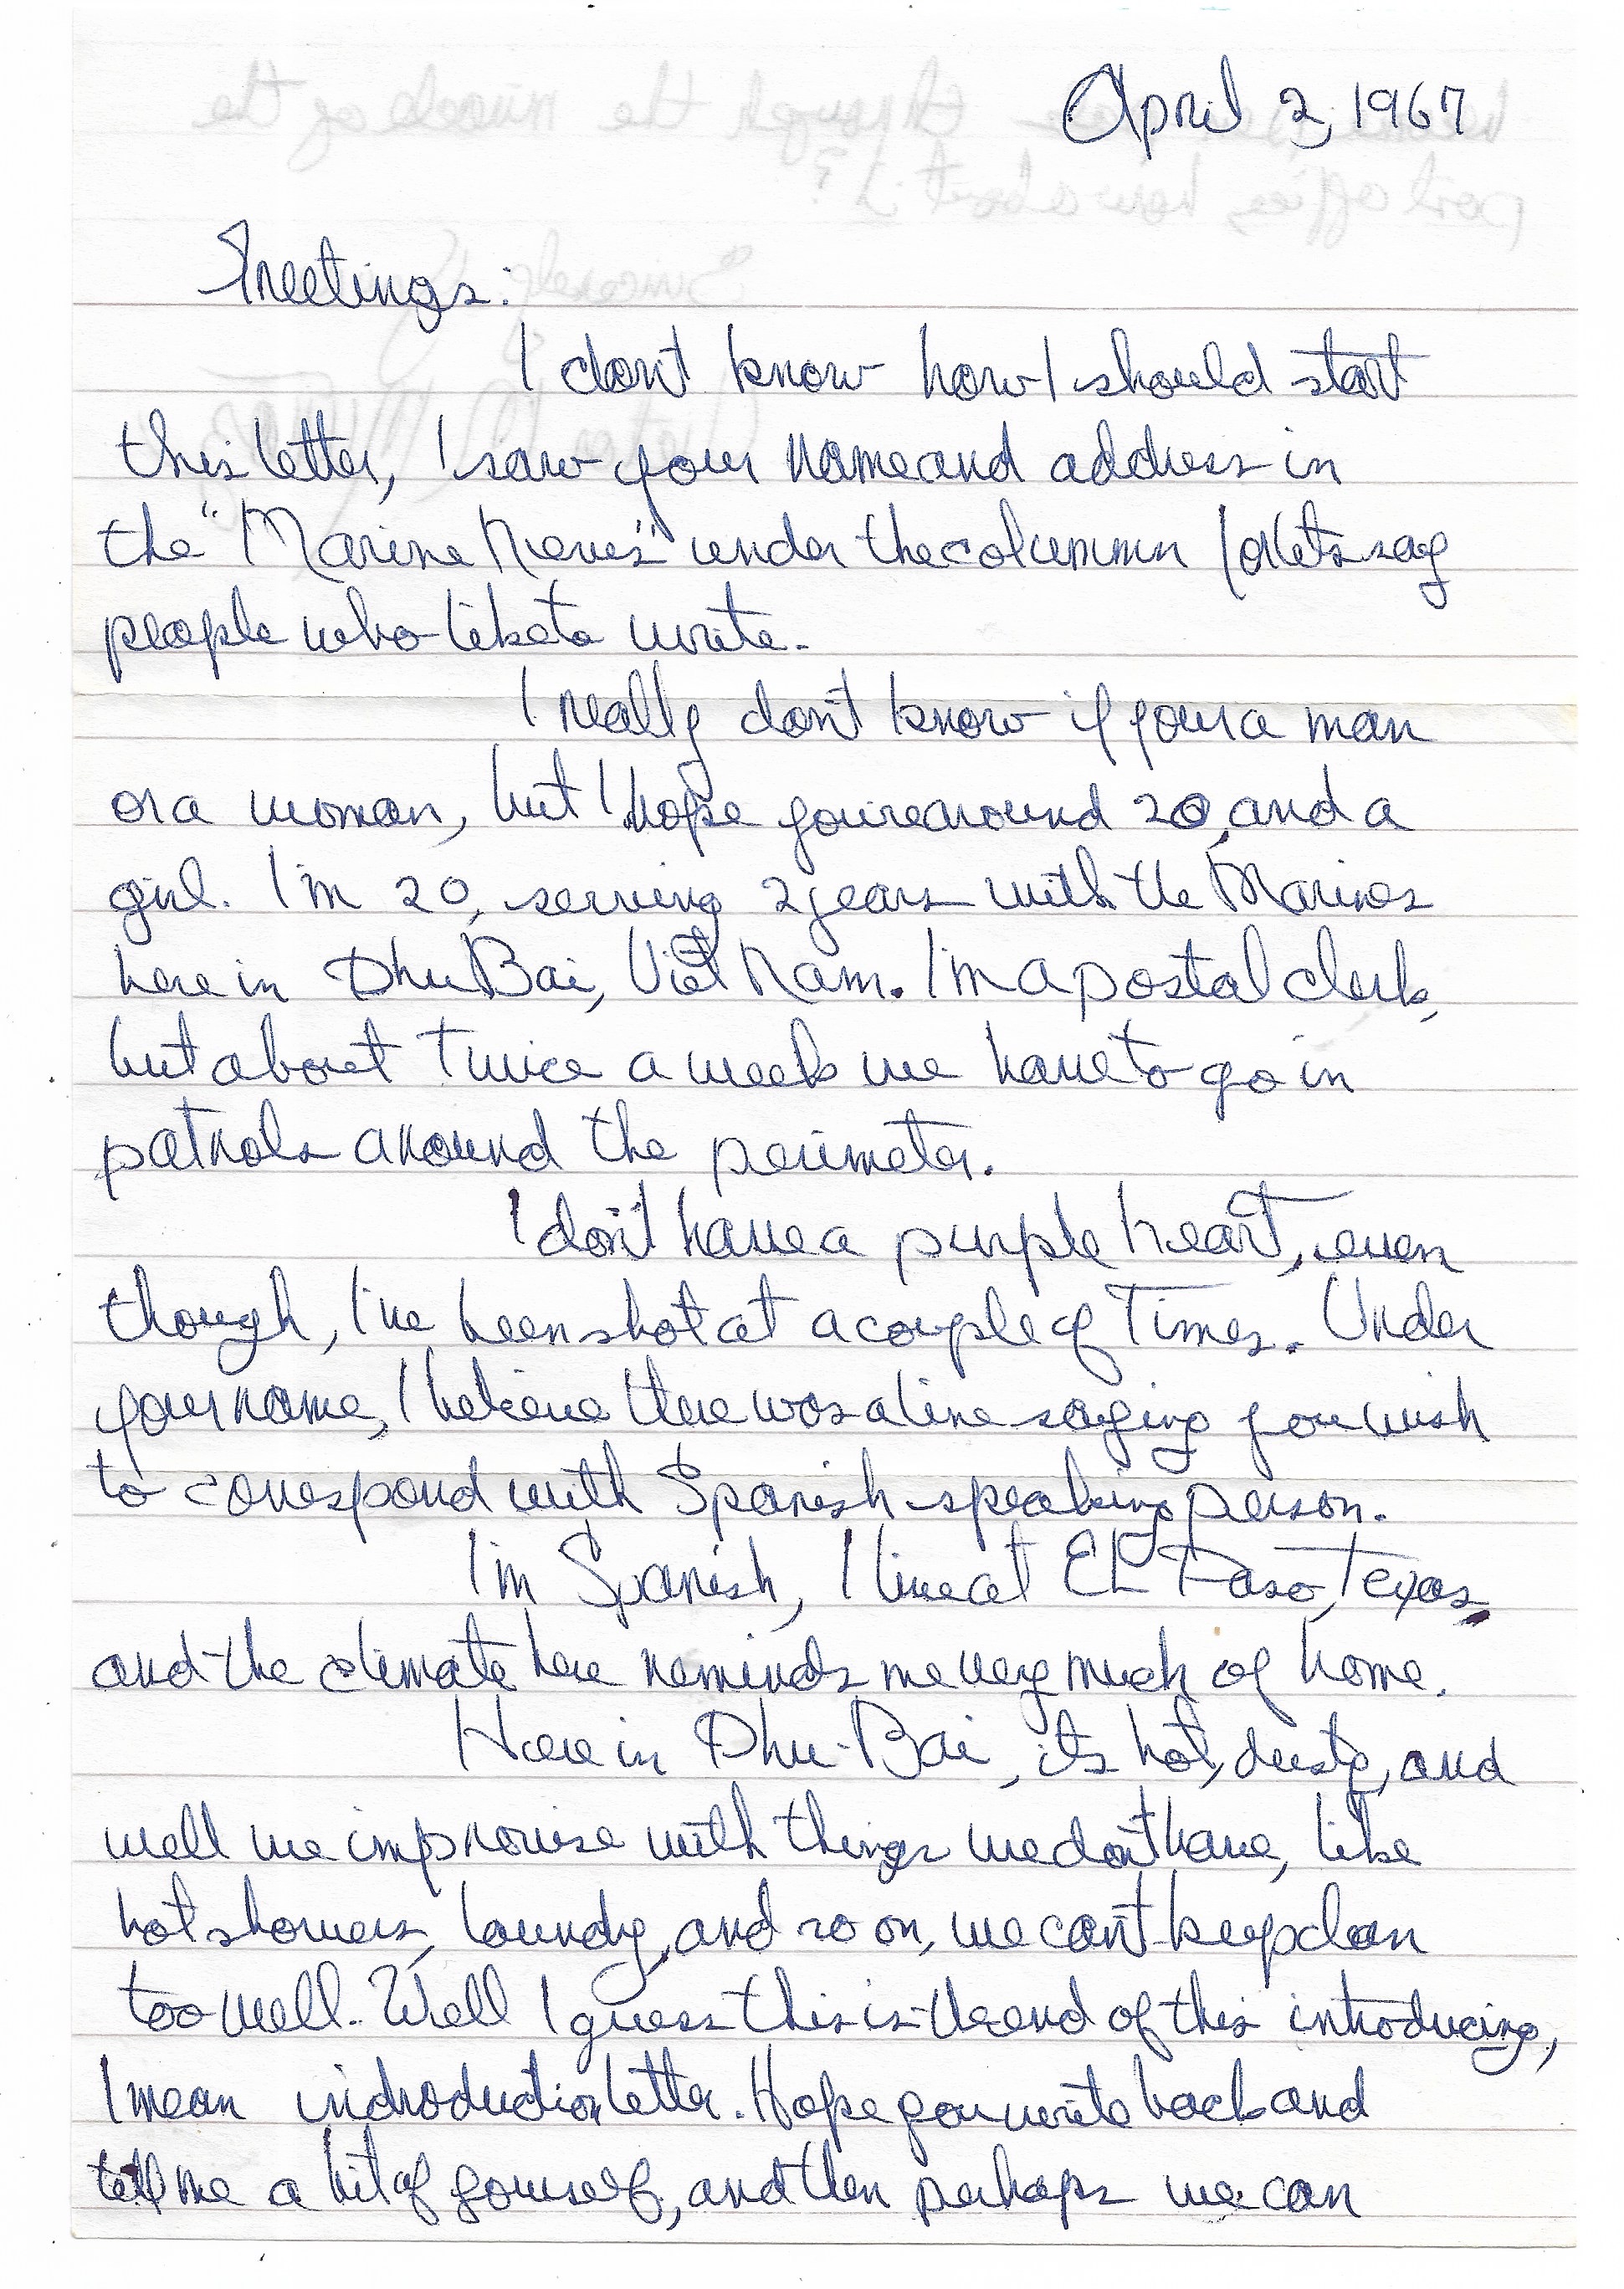 April 2, 1967
Greetings:
I don't know how I should start
this letter, I saw your name and address in
the "Marine News" under the columnn for lets say
people who like to write.
I really don't know if your a man
or a woman, but I hope you're around 20, and a
girl. I'm 20, serving 2 years with the Marines
here in Phu Bai, Viet Nam. I'm a postal clerk,
but about twice a week we have to go in
patrols around the perimeter.
I don't have a purple heart, even
though, I've been shot at a couple of times. Under
your name, I believe there was a line saying you wish
to correspond with Spanish speaking person.
I'm Spanish, I live at El Paso, Texas,
and the climate here reminds me very much of home.
Here in Phu-Bai, its hot, dusty, and
well we improvise with things we don't have, like
hot showers, laundry, and so on, we can't keep clean
too well. Well I guess this is the end of this introducing,
I mean introduction letter. Hope you write back and
tell me a bit of yourself, and then perhaps we can